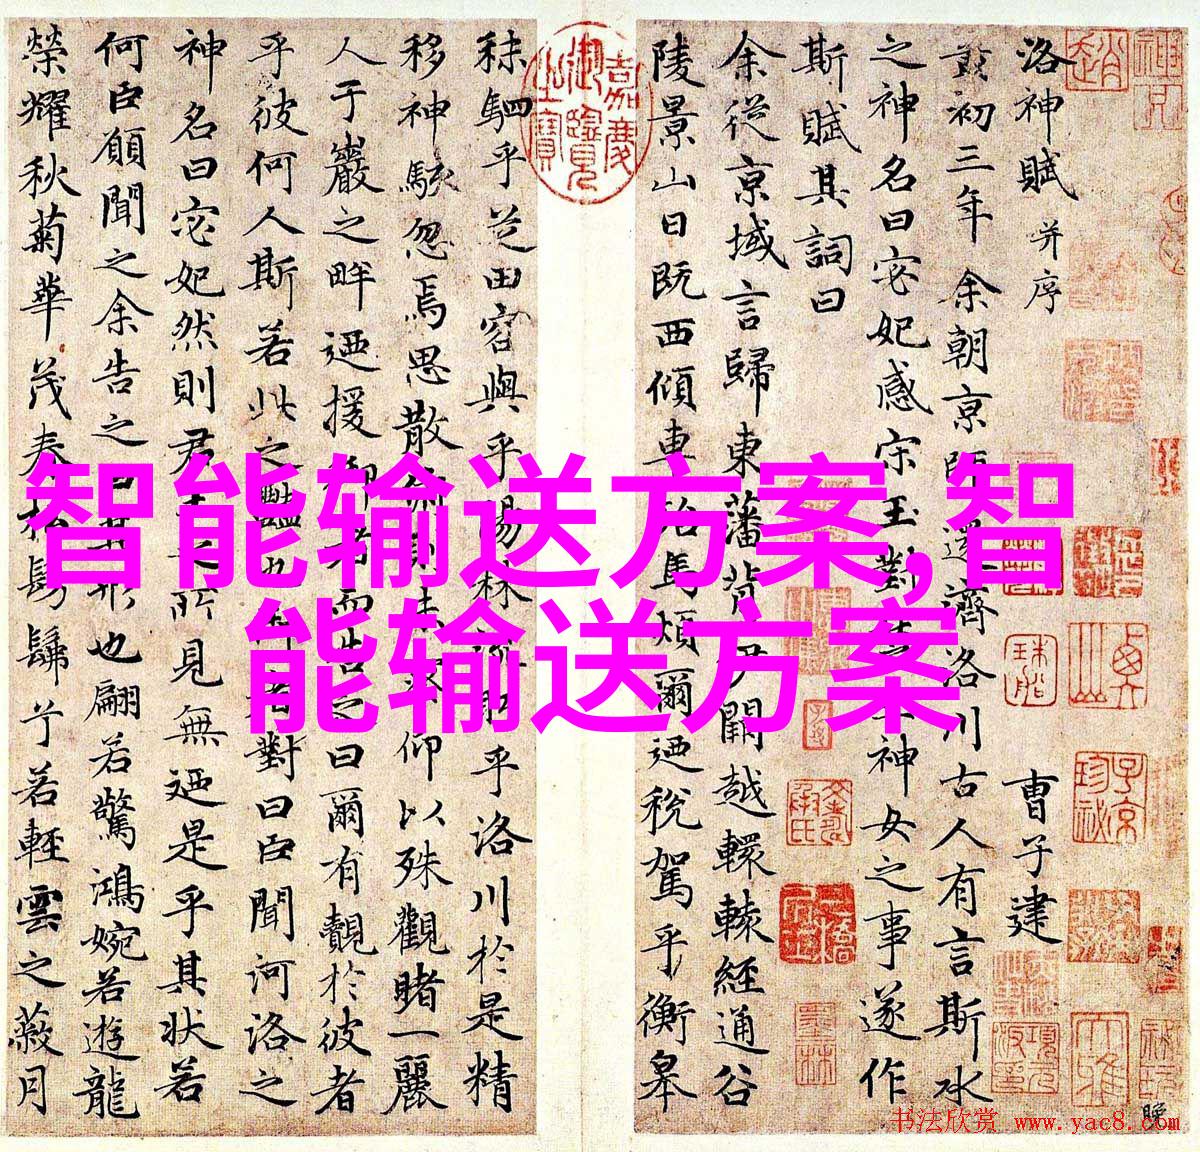 智能输送方案,智
能输送方案
洛神賦 并序 曹子建
黃初三年余朝京師還濟洛川古人有言斯水
之神名曰宓妃感宋玉對楚王神女之事遂作
斯賦其詞曰
余從京域言歸東藩背伊闕越轘轅經通谷
陵景山日既西傾車殆馬煩爾迺稅駕乎衡皋
嘉慶御覽之寶
秣駟乎芝田容與乎陽林流眄乎洛川於是精
移神駭忽焉思散俯則未察仰以殊觀睹一麗
人于巖之畔迺援御者而告之曰爾有覿於彼者
乎彼何人斯若此之豔也御者對曰臣聞河洛之
神名曰宓妃然則君王之所見無迺是乎其狀若
何臣願聞之余告之曰其形也翩若驚鴻婉若遊龍
榮耀秋菊華茂春松髣髴兮若輕雲之蔽月
书法欣赏 www.yac8.com